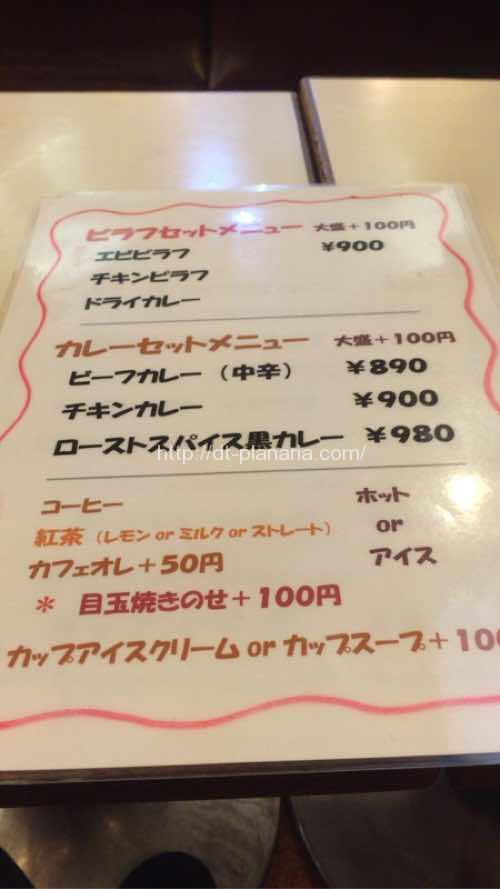 ピラフセットメニュー 大盛+100円
エビピラフ ¥900
チキンピラフ
ドライカレー
カレーセットメニュー 大盛+100円
ビーフカレー (中辛) ¥890
チキンカレー ¥900
ローストスパイス黒カレー ¥980
http://dt-planaria.com/
コーヒー ホット
紅茶 (レモン or ミルク or ストレート) or
カフェオレ+50円 アイス
* 目玉焼きのせ+100円
カップアイスクリーム or カップスープ+100